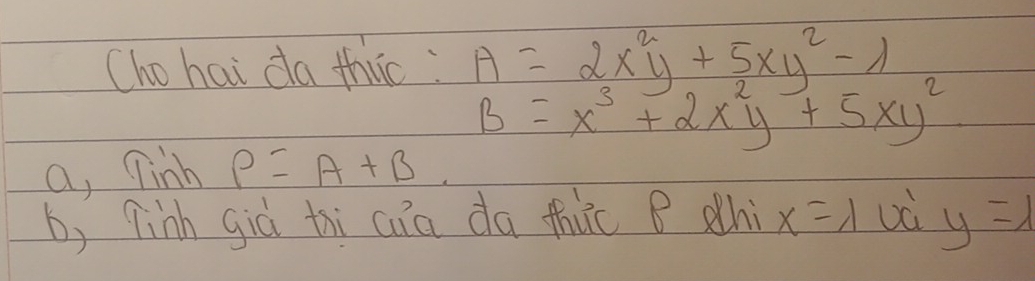 Cho hai đa thức : A = 2x²y + 5xy² - 1
B = x³ + 2x²y + 5xy².
a, Tính P = A + B.
b, Tính giá trị của đa thức P khi x = 1 và y = 1